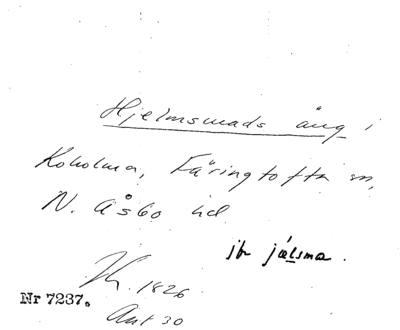 Hjelmsmads äng i
Koholma, Färingtofta sn,
N. Åsbo hd.
jbr jælsma.
1826
Nr 7237.
Ant 30